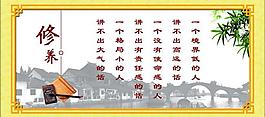 修养
一个境界低的人
讲不出高远的话
一个没有使命感的人
讲不出有责任感的话
一个格局小的人
讲不出大气的话